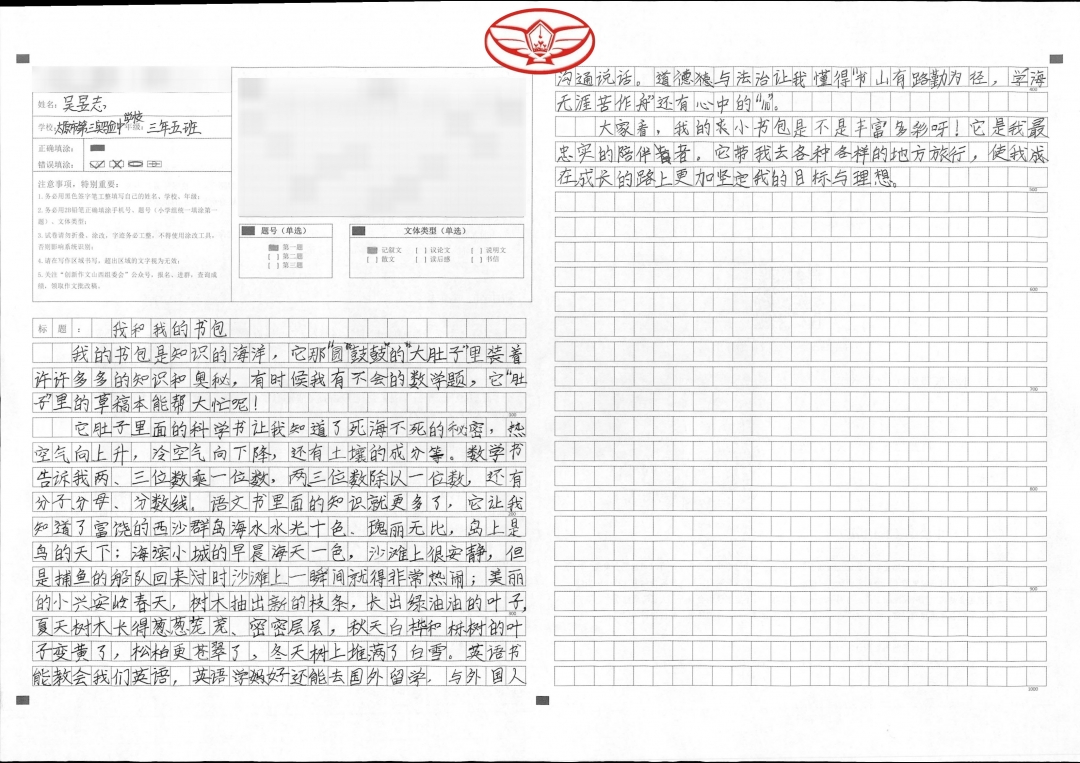 姓名：吴昱志
学校： 年级：三年五班
正确填涂：
错误填涂：
注意事项，特别重要：
1.务必用黑色签字笔工整填写自己的姓名，学校，年级；
2.务必用2B铅笔正确填涂手机号、题号（小学组统一填涂第一
题）、文体类型；
3.试卷请勿折叠、涂改，字迹务必工整，不得使用涂改工具，
否则影响系统识别；
4.请在写作区域书写，超出区域的文字视为无效；
5.关注“创新作文山西组委会”公众号，报名、进群、查询成
绩、领取作文批改稿。
题号（单选）
第一题
[ ] 第二题
[ ] 第三题
文体类型（单选）
记叙文 [ ] 议论文 [ ] 说明文
[ ] 散文 [ ] 读后感 [ ] 书信
标题： 我和我的书包
我的书包是知识的海洋，它那“圆鼓鼓”的“大肚子”里装着
许许多多的知识和奥秘，有时候我有不会的数学题，它“肚
子”里的草稿本能帮大忙呢！
100
它肚子里面的科学书让我知道了死海不死的秘密，热
空气向上升，冷空气向下降，还有土壤的成分等。数学书
告诉我两、三位数乘一位数，两三位数除以一位数，还有
分子、分母、分数线。语文书里面的知识就更多了，它让我
200
知道了富饶的西沙群岛海水水光十色、瑰丽无比，岛上是
鸟的天下；海滨小城的早晨海天一色，沙滩上很安静，但
是捕鱼的船队回来时沙滩上一瞬间就得非常热闹；美丽
的小兴安岭春天，树木抽出新的枝条，长出绿油油的叶子，
300
夏天树木长得葱葱茏茏、密密层层，秋天白桦和栎树的叶
子变黄了，松柏更苍翠了，冬天树上堆满了白雪。英语书
能教会我们英语，英语学好还能去国外留学，与外国人
沟通说话。道德与法治让我懂得“书山有路勤为径，学海
400
无涯苦作舟”还有心中的“ ”。
大家看，我的小书包是不是丰富多彩呀！它是我最
忠实的陪伴者，它带我去各种各样的地方旅行，使我
在成长的路上更加坚定我的目标与理想。
500
600
700
800
900
1000